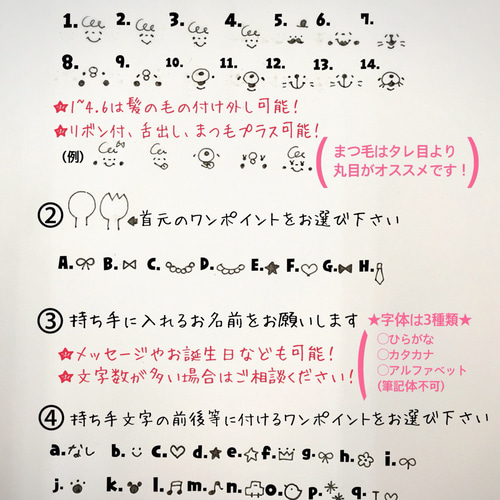 1. 2. 3. 4. 5. 6. 7.
8. 9. 10. 11. 12. 13. 14.
★1~4.6は髪のもの付け外し可能!
★リボン付、舌出し、まつもプラス可能!
(例)
まつ毛はタレ目より
丸目がオススメです!
② 首元のワンポイントをお選び下さい
A. B. C. D. E. F. G. H.
③ 持ち手に入れるお名前をお願いします
★メッセージやお誕生日なども可能!
★文字数が多い場合はご相談ください!
★字体は3種類★
○ひらがな
○カタカナ
○アルファベット
(筆記体不可)
④ 持ち手文字の前後等に付けるワンポイントをお選び下さい
a.なし b. c. d. e. f. g. h. i.
j. k. l. m. n. o. p. q.